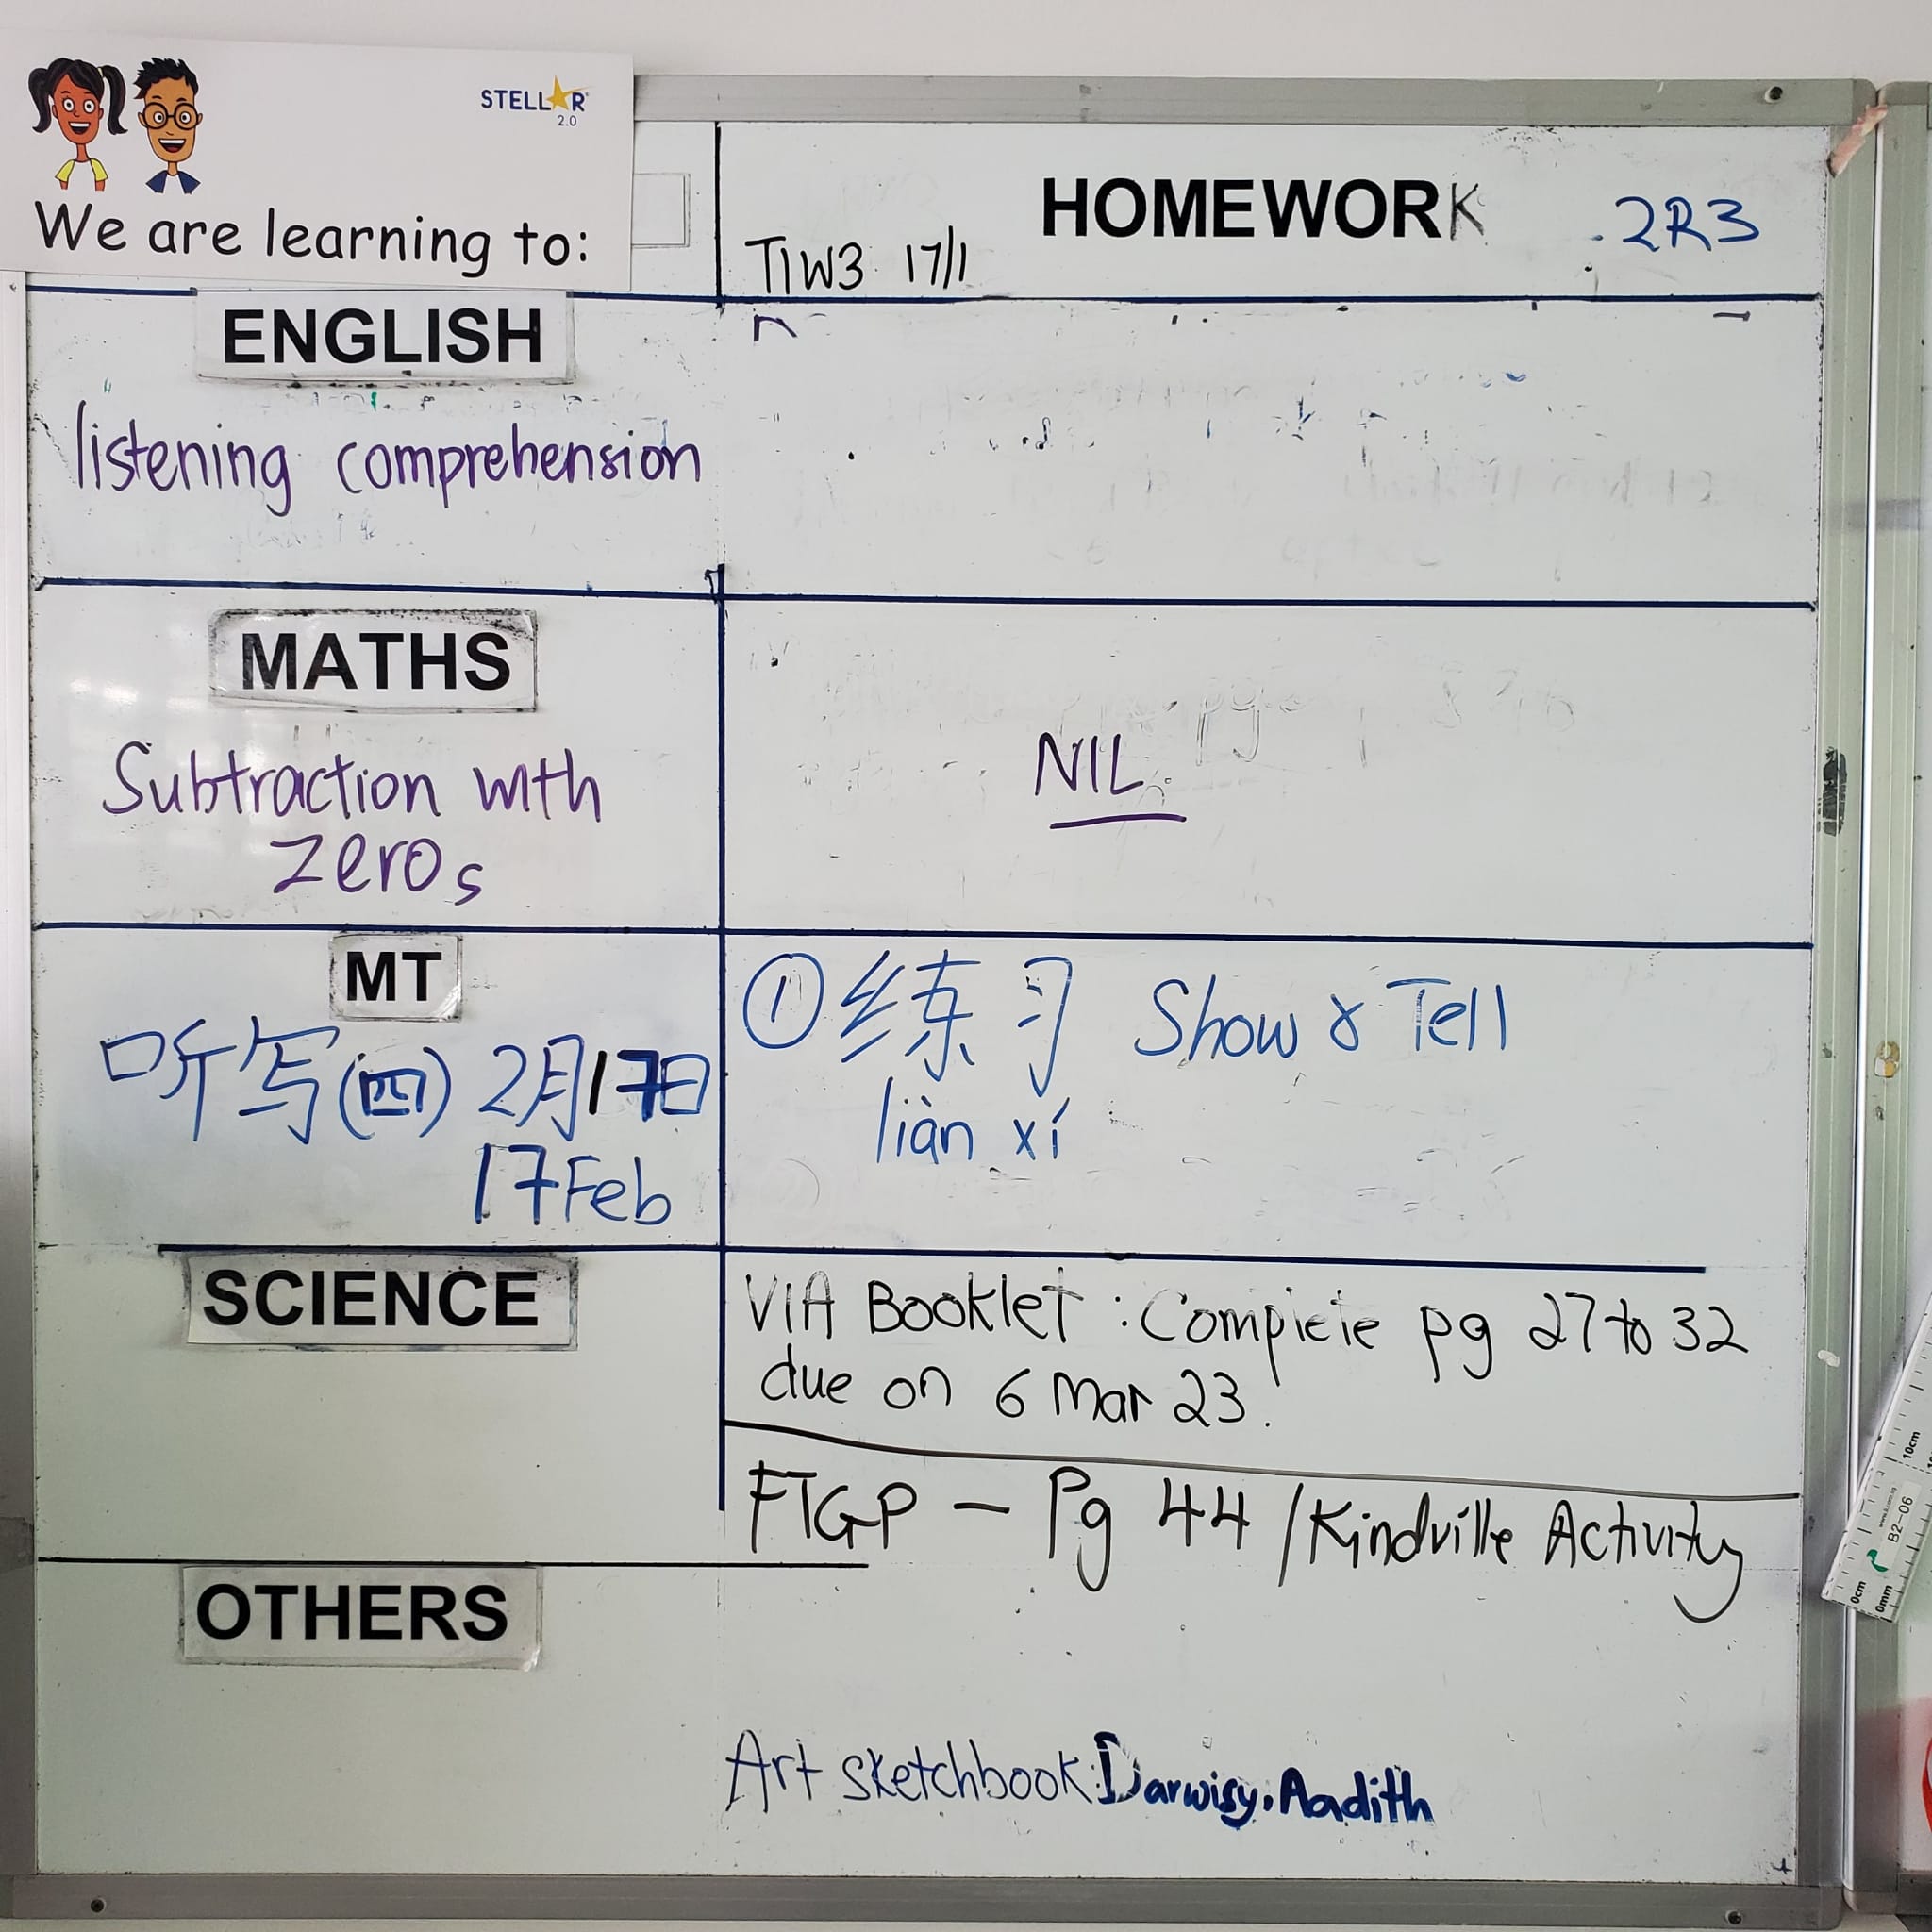 STELLAR
2.0
We are learning to:
HOMEWORK 2R3
T1W3 17/1
ENGLISH
listening comprehension
MATHS
Subtraction with
zeros
NIL
MT
听写(四) 2月17日
17 Feb
①练习 Show & Tell
liàn xí
SCIENCE
VIA Booklet : Complete pg 27 to 32
due on 6 Mar 23.
FTGP - Pg 44 / Kindville Activity
OTHERS
Art sketchbook: Darwisy, Aadith
10cm
B2-06
0cm
0mm